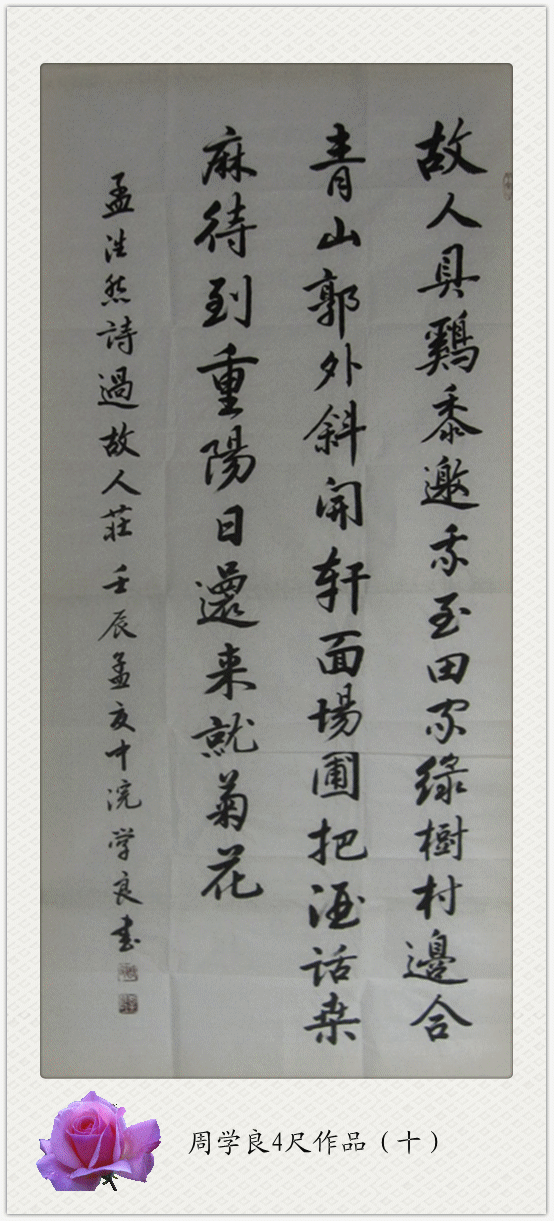 故人具鷄黍邀我至田家綠樹村邊合
青山郭外斜開轩面場圃把酒話桒
麻待到重陽日還来就菊花
孟浩然詩過故人莊 壬辰孟夏十浣学良书
周学良4尺作品（十）